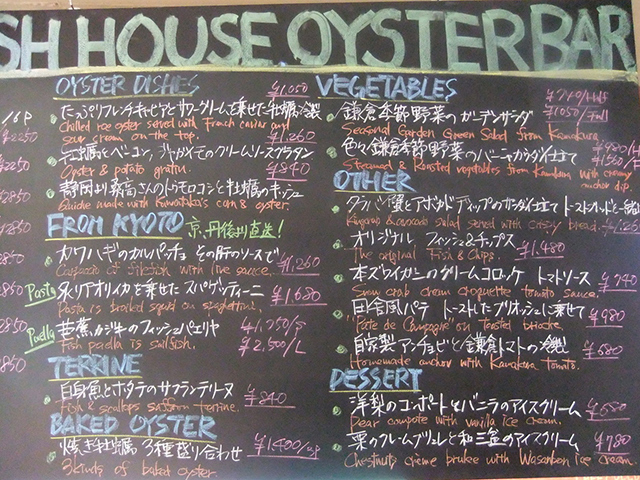 SH HOUSE OYSTERBAR
OYSTER DISHES ¥1,050
たっぷりフレンチキャビアとサワークリームを乗せた牡蠣の冷製
Chilled rice oyster served with French caviar and
sour cream on the top. ¥1,260
牡蠣とベーコン、ジャガイモのクリームソースグラタン
Oyster & potato gratin. ¥840
静岡より森高さんのトウモロコシと牡蠣のキッシュ
Quiche made with corn & oyster.
FROM KYOTO 京、丹後より直送!
カワハギのカルパッチョ その肝のソースで
Carpaccio of filefish with live sauce. ¥1,260
Pasta 炙りアオリイカを乗せた スパゲッティーニ ¥1,680
Pasta is broiled squid on spaghettini.
Paella フィッシュパエリヤ ¥1,250/S
Fish paella is sailfish. ¥2,500/L
TERRINE
白身魚とホタテのサフランテリーヌ
Fish & scallops saffron terrine. ¥840
BAKED OYSTER
焼き牡蠣 3種盛り合わせ ¥1,400/
3 kinds of baked oyster.
VEGETABLES ¥740/Half
鎌倉季節野菜のガーデンサラダ ¥1050/Full
Seasonal Garden Green Salad from Kamakura
色々鎌倉季節野菜のバーニャカウダ仕立て ¥980/H
Steamed & Roasted vegetables from Kamakura with creamy ¥1,560/
anchor dip
OTHER
タラバ蟹とアボカドディップのサンタ仕立て トーストメルバと一緒
Kingcrab & avocado salad served with crispy bread. ¥1,260
オリジナル フィッシュ&チップス
The original Fish & Chips. ¥1,480
本ズワイガニのクリームコロッケ トマトソース
Snow crab cream croquette tomato sauce. ¥740
田舎風パテ トーストしたブリオッシュに乗せて
"Pate de Campagne" on Toasted brioche. ¥980
自家製アンチョビと鎌倉トマトの冷製
Homemade anchor with Kamakura Tomato. ¥680
DESSERT
洋梨のコンポートとバニラのアイスクリーム
Pear compote with vanilla ice cream. ¥680
栗のクレームブリュレと和三盆のアイスクリーム
Chestnuts crème brulee with Wasanbon ice cream. ¥780
/6P
2250
2250
2850
2850
2850
2850
2850
850